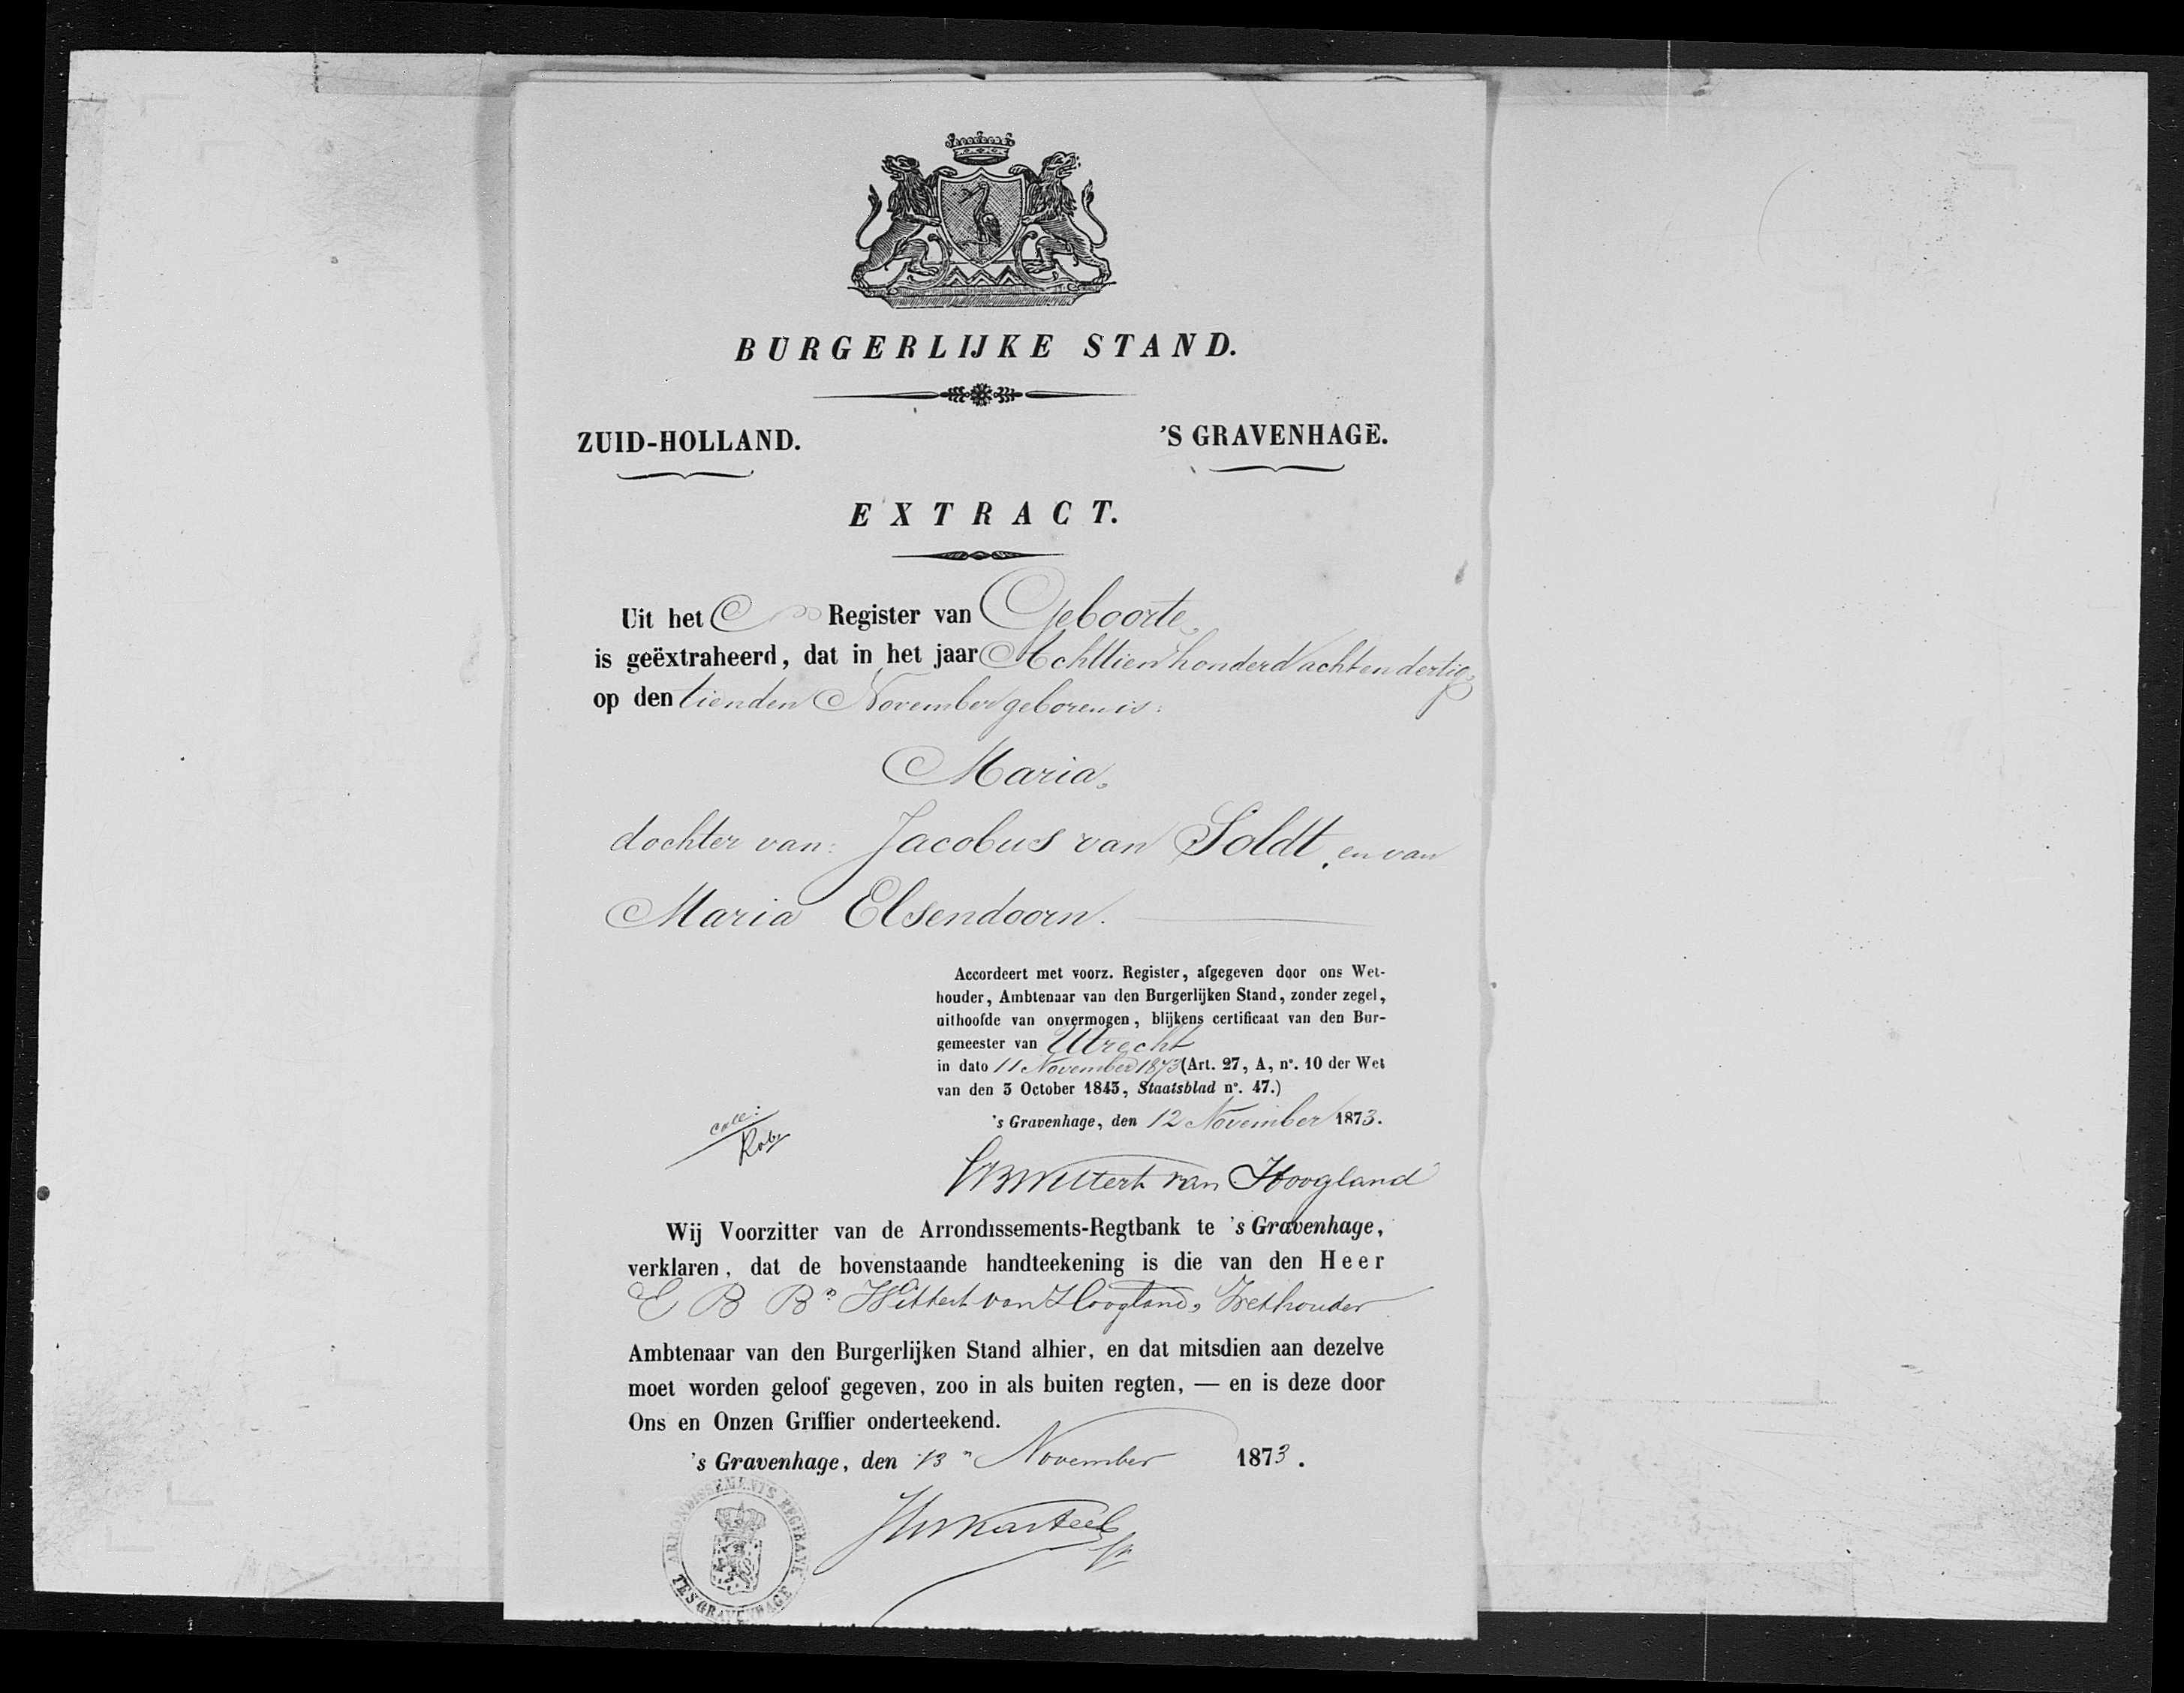 BURGERLIJKE STAND.
ZUID-HOLLAND.
'S GRAVENHAGE.
EXTRACT.
Uit het Register van Geboorte
is geëxtraheerd, dat in het jaar Achttienhonderd achtendertig
op den tienden November geboren is:
Maria,
dochter van: Jacobus van Soldt, en van
Maria Elsendoorn.
Accordeert met voorz. Register, afgegeven door ons Wet-
houder, Ambtenaar van den Burgerlijken Stand, zonder zegel,
uithoofde van onvermogen, blijkens certificaat van den Bur-
gemeester van Utrecht
in dato 11 November 1873 (Art. 27, A, n°. 10 der Wet
van den 3 October 1843, Staatsblad n°. 47.)
's Gravenhage, den 12 November 1873.
Wittert van Hoogland
Wij Voorzitter van de Arrondissements-Regtbank te 's Gravenhage,
verklaren, dat de bovenstaande handteekening is die van den Heer
E B Bn Wittert van Hoogland, Wethouder
Ambtenaar van den Burgerlijken Stand alhier, en dat mitsdien aan dezelve
moet worden geloof gegeven, zoo in als buiten regten, — en is deze door
Ons en Onzen Griffier onderteekend.
's Gravenhage, den 13n November 1873.
ARRONDISSEMENTS REGTBANK
TE S GRAVENHAGE